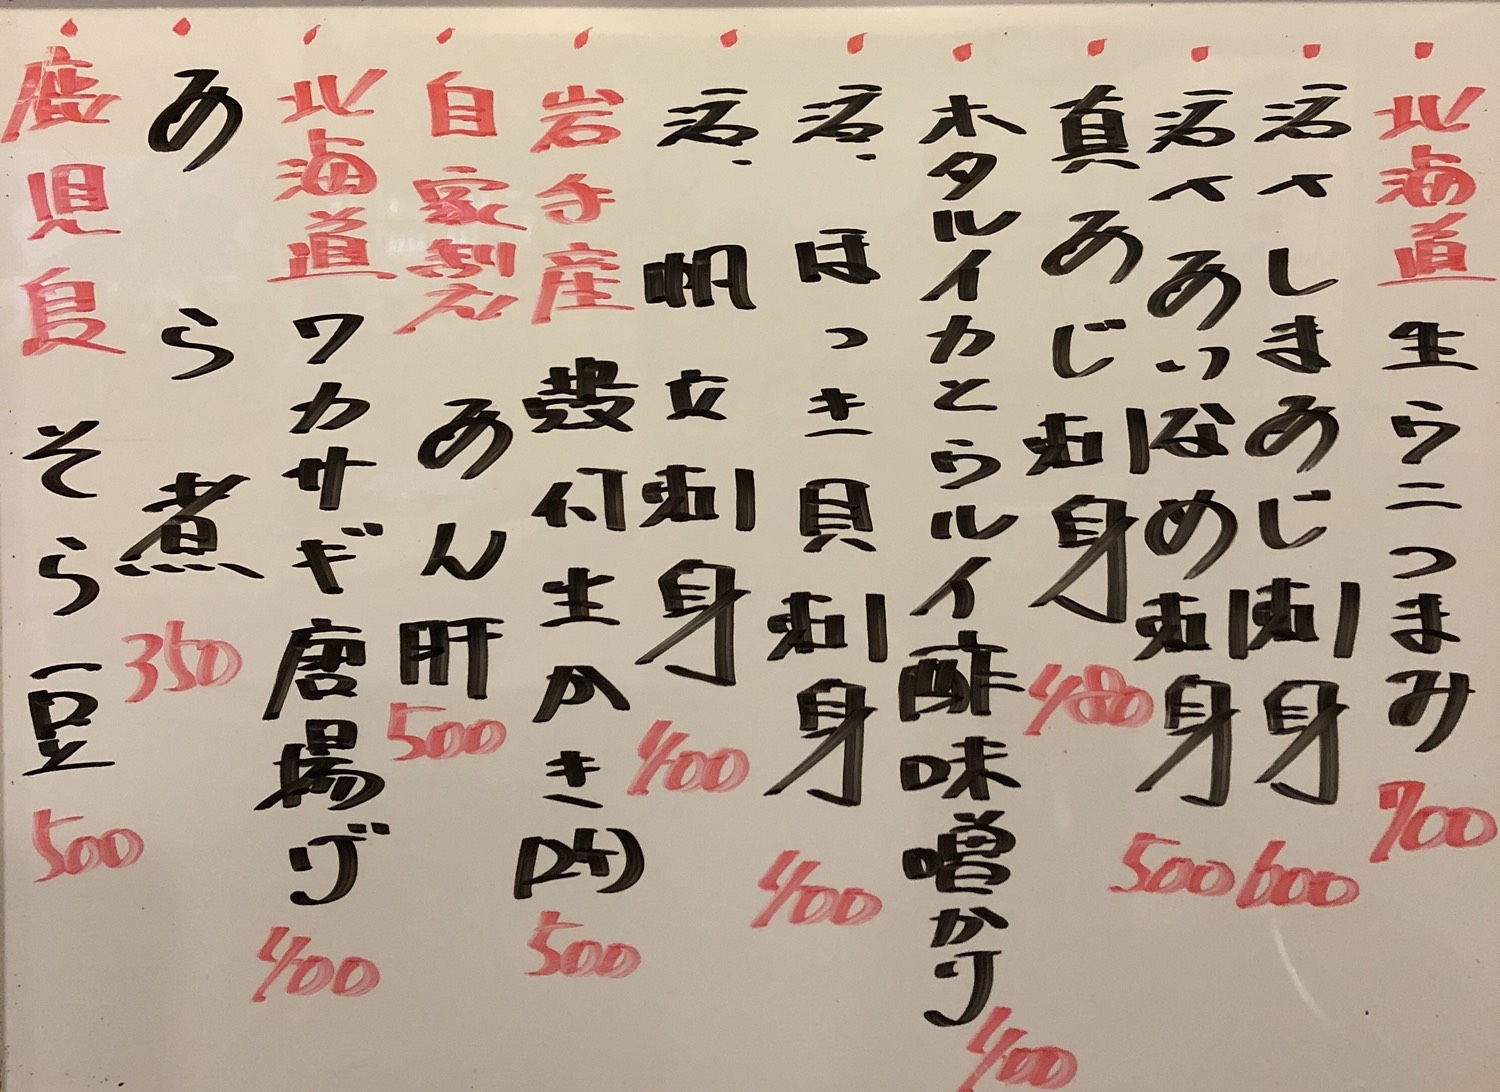 北海道 生ウニつまみ 700
活〆 しまあじ刺身 600
活〆 あいなめ刺身 500
真あじ刺身 480
ホタルイカとウルイ酢味噌かけ 400
活 ほっき貝刺身 400
活 帆立刺身 400
岩手産 殻付生かき(2ヶ) 500
自家製 あん肝 500
北海道 ワカサギ唐揚げ 400
あら煮 350
鹿児島 そら豆 500